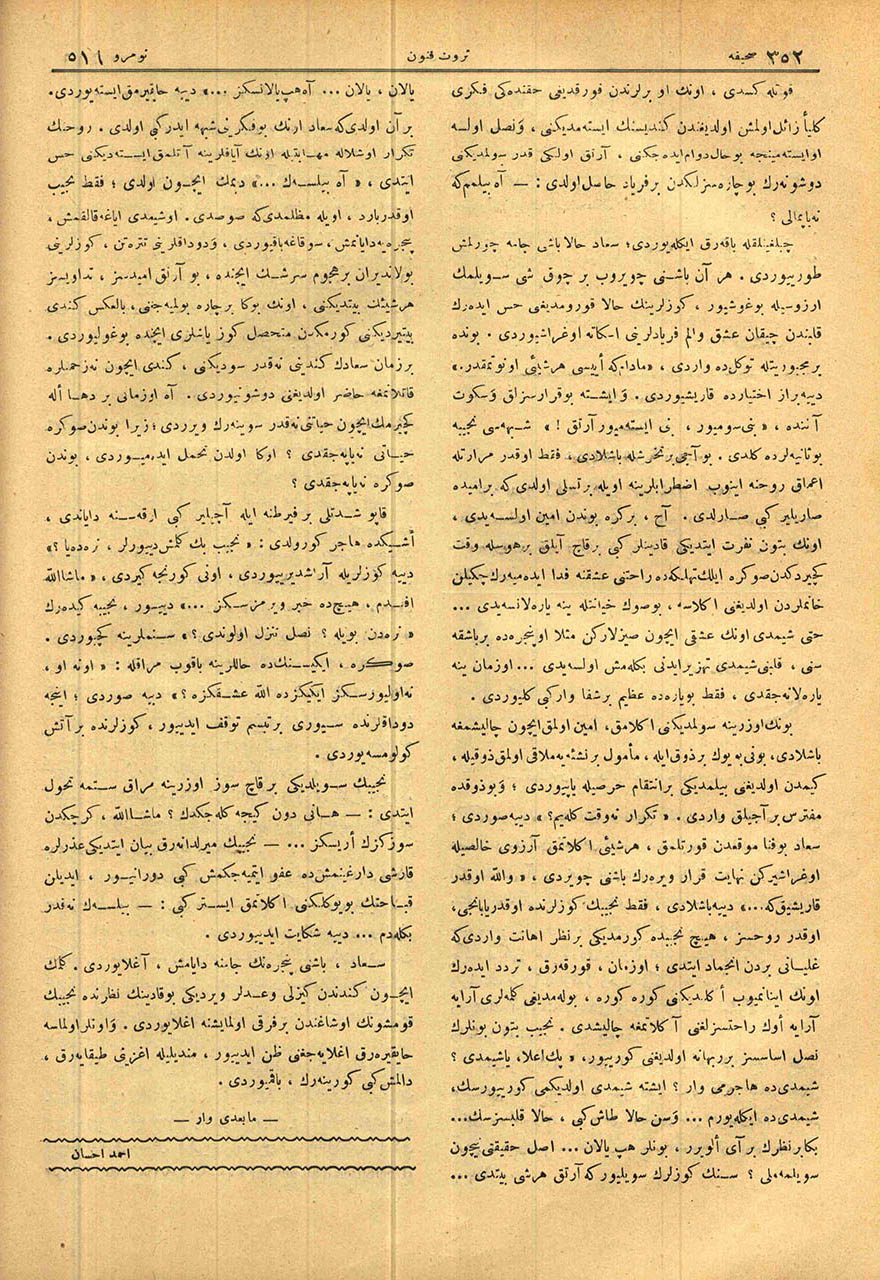 صحیفه ٣٥٢
ثروت فنون
نومرو ٥١١
قوتله كسدی ، اونك او برلرندن قورقدیغی حقنده كی فكری
كلیاً زائل اولمش اولدیغندن كندیسنك ایسته‌مدیكنی ، و نصل اولسه
او ایسته‌مینجه بو حال دوام ایده‌جكنی ، آرتق اولكی قدر سولمدیكنی
دوشونه‌رك بو چاره‌سزلكدن بر فریاد حاصل اولدی : — آه بیلمم كه
نه یاپمالی ؟
چیلغینلقله باقه‌رق ایكله‌یوردی ؛ سعاد حالا باشی جامه چورلمش
طورییوردی . هر آن باشنی چویروب بر چوق شی سویلمك
ارزوسیله بوغوشیور ، كوزلرینك حالا قورومدیغنی حس ایده‌رك
قلبندن چیقان عشق و الم فریادلرینی اسكاته اوغراشیوردی . بونده
بر مجبوریتله توكل ده واردی ، « مادام كه أییسی هر شیئی اونوتمقدر . »
دییه براز اختیارده قاریشیوردی . و ایشته بو قرارسزلق و سكوت
آننده ، « بنی سومیور ، بنی ایسته‌میور آرتق ! » شبهه‌سی نجیبه
بو ثانیه‌لرده كلدی . بو آجی بر تخرشله باشلادی ، فقط او قدر مرارتله
اعماق روحنه اینوب اضطرابلرینه اویله بر تسلی اولدی كه بر امیده
صاریلیر كبی صارلدی . آح ، بر كره بوندن امین اولسه‌یدی ،
اونك بتون نفرت ایتدیكی قادینلر كبی بر قاچ آیلق بر هوسله وقت
كچیردكدن صوكره ایلك تهلكه‌ده راحتنی عشقنه فدا ایده‌میه‌رك چكیلن
خانملردن اولدیغنی اكلاسه ، بو صوك خیانتله ینه یاره‌لانسه‌یدی ...
حتی شیمدی اونك عشقی ایچون صیزلاركن مثلا او پنجره‌ده بر باشقه‌
سنی ، قلبنی شیمدی تهزیز ایدنی بكله‌مش اولسه‌یدی ... اوزمان ینه
یاره‌لانه‌جقدی ، فقط بو یاره‌ده عظیم بر شفا وار كبی كلیوردی .
بونك اوزرینه سولمدیكنی اكلامق ، امین اولمق ایچون چالیشمغه
باشلادی ، بونی بویوك بر ذوق ایله ، مأمول بر نشئه‌یه ملاقی اولمق ذوقیله ،
كیمدن اولدیغی بیلمدیكی بر انتقام حرصیله یاپیوردی ؛ و بو ذوقده
مفترس بر آجیلق واردی . « تكرار نه وقت كله‌یم ؟ » دییه صوردی ؛
سعاد بو فنا موقعدن قورتلمق ، هر شیئی اكلاتمق آرزوی خالصیله
اوغراشیركن نهایت قرار ویره‌رك باشنی چویردی ، « والله او قدر
قاریشیق كه ... » دییه باشلادی ، فقط نجیبك كوزلرنده او قدر یابانجی ،
او قدر روحسز ، هیچ نجیبده كورمدیكی بر نظر اهانت واردی كه
غلیانی بردن انجماد ایتدی ؛ اوزمان ، قورقه‌رق ، تردد ایده‌رك
اونك اینانمیوب أكلدیكنی كوره كوره ، بوله‌مدیغی كلمه‌لری آرایه
آرایه أوك راحتسزلغنی آكلاتمغه چالیشدی . نجیب بتون بونلرك
نصل اساسسز بر بهانه اولدیغنی كورییور ، « پك اعلا ، یا شیمدی ؟
شیمدی ده هاجرمی وار ؟ ایشته شیمدی اولدیكمی كورییورسك ،
شیمدی ده ایكله‌یورم ... و سن حالا طاش كبی ، حالا قلبسزسك ...
بكا بر نظرك بر آی ألویرر ، بونلر هپ یالان ... اصل حقیقتی نیچون
سویلمه‌ملی ؟ سنك كوزلرك سویلیور كه آرتق هر شی بیتدی ...
یالان ، یالان ... آه هپ یالانسكز ... » دییه حایقیرمق ایسته‌یوردی .
بر آن اولدی كه سعاد ارنك بو فكرینی شبهه ایدر كبی اولدی . روحنك
تكرار اوشلاله مهابتیله اونك آیاقلرینه آتلمق ایستدیكنی حس
ایتدی ، « آه بیلسه‌ك ... » دیمك ایچون اولدی ؛ فقط نجیب
او قدر بارد ، اویله مظلمدی كه صوصدی . اوشیمدی ایاغه قالقمش ،
پنجره‌یه دایانمش ، سوقاغه باقیوردی ، و دوداقلرینی تتره‌تن ، كوزلرینی
بولاندیران بر هجوم سرشك ایچنده ، بو آرتق امیدسز ، تداویسز
هرشیئك بیتدیكنی ، اونك بوكا بر چاره بولمیه‌جغنی ، بالعكس كندی
بیتیردیكنی كورمكدن متحصل كوز یاشلری ایچنده بوغولیوردی .
بر زمان سعادك كندینی نه‌قدر سودیكنی ، كندی ایچون نه زحمتلره
قاتلانمغه حاضر اولدیغنی دوشونیوردی . آه اوزمانی بر دها أله
كچیرمك ایچون حیاتنی نه‌قدر سوینه‌رك ویرردی ؛ زیرا بوندن صوكره
حیاتی نه یاپه‌جقدی ؟ اوكا اولدن تحمل ایدیمیوردی ، بوندن
صوكره نه یاپه‌جقدی ؟
قاپو شدتلی بر فیرطنه ایله آچیلیر كبی ارقه‌سنه دایاندی ،
أشیكده هاجر كورولدی : « نجیب بك كلمش دییورلر ، نره‌ده یا ؟ »
دییه كوزلریله آراشدیرییوردی ، اونی كورنجه كیردی ، « ماشاالله
افندم ، هیچ ده خبر ویرمزسكز ... » دییور ، نجیبه كیده‌رك
« نره‌دن بویله ؟ نصل تنزل اولوندی ؟ » ستملرینه كچییوردی .
صوكره ، ایكیسنك ده حاللرینه باقوب مراقله : « او نه او ،
نه اولیورسكز ایكیكزده الله عشقكزه ؟ » دییه صوردی ؛ اینجه
دوداقلرنده سیوری بر تبسم توقف ایدییور ، كوزلرنده بر آتش
كولومسه‌یوردی .
نجیبك سویلدیكی بر قاچ سوز اوزرینه مراق ستمه تحول
ایتدی : — هانی دون كیجه كله‌جكدك ؟ ماشاالله ، كرچكدن
سوزكزك أریسكز ... — نجیبك میرلدانه‌رق بیان ایتدیكی عذرلره
قارشی دارغینمش ده عفو ایتمیه‌جكمش كبی دورانیور ، ایدیلن
قباحتك بویوكلكنی اكلاتمق ایستر كبی : — بیلسه‌ك نه‌قدر
بكله‌دم ... دییه شكایت ایدییوردی .
سعاد ، باشنی پنجره‌نك جامنه دایامش ، آغلایوردی . كلمك
ایچون كندندن كیزلی وعدلر ویردیكی بو قادینك نظرنده نجیبك
قومشونك اوشاغندن بر فرقی اولمایشنه اغلایوردی . و اونلر اولماسه
حایقیره‌رق اغلایه‌جغنی ظن ایدییور ، مندیلیله اغزینی طیقایه‌رق ،
دالمش كبی كورینه‌رك ، باقمیوردی .
— مابعدی وار —
احمد احسان